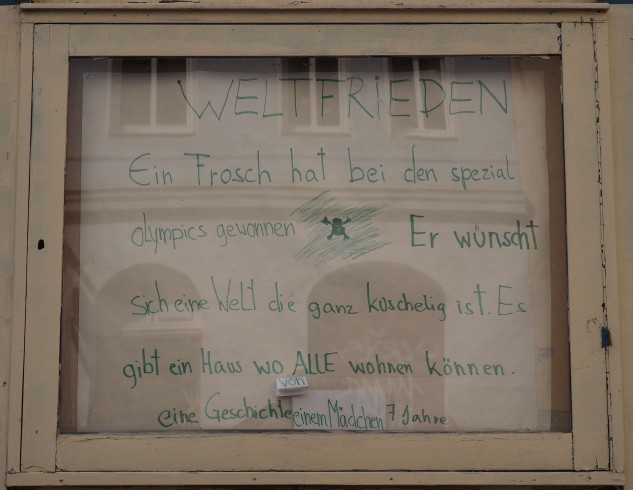 WELTFRiEDEN
Ein Frosch hat bei den spezial
olympics gewonnen Er wünscht
sich eine Welt die ganz kuschelig ist. Es
gibt ein Haus wo ALLE wohnen können.
von
eine Geschichte einem Mädchen 7 Jahre